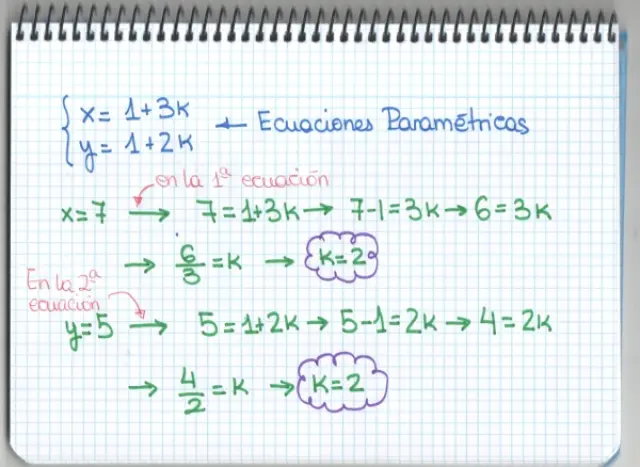 x = 1+3k
y = 1+2k ← Ecuaciones Paramétricas
en la 1ª ecuación
x=7 → 7=1+3k → 7-1=3k → 6=3k
→ 6/3 = k → k=2
En la 2ª
ecuación
y=5 → 5=1+2k → 5-1=2k → 4=2k
→ 4/2 = k → k=2